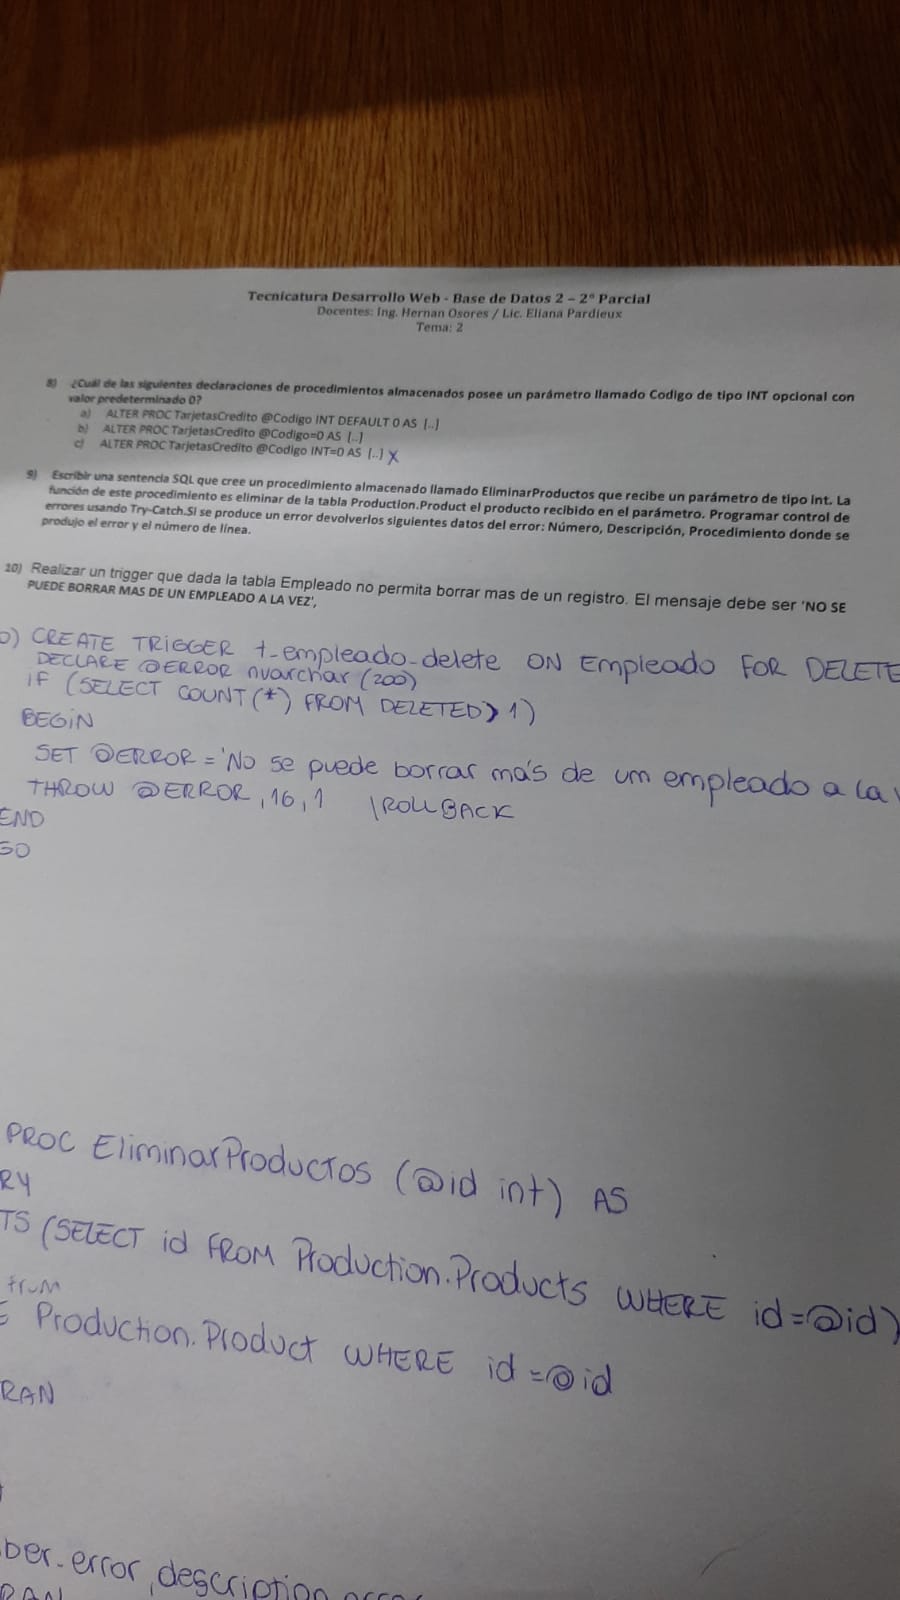 Tecnicatura Desarrollo Web - Base de Datos 2 – 2° Parcial
Docentes: Ing. Hernan Osores / Lic. Eliana Pardieux
Tema: 2
8) ¿Cuál de las siguientes declaraciones de procedimientos almacenados posee un parámetro llamado Codigo de tipo INT opcional con
valor predeterminado 0?
a) ALTER PROC TarjetasCredito @Codigo INT DEFAULT 0 AS [..]
b) ALTER PROC TarjetasCredito @Codigo=0 AS [..]
c) ALTER PROC TarjetasCredito @Codigo INT=0 AS [..] X
9) Escribir una sentencia SQL que cree un procedimiento almacenado llamado EliminarProductos que recibe un parámetro de tipo Int. La
función de este procedimiento es eliminar de la tabla Production.Product el producto recibido en el parámetro. Programar control de
errores usando Try-Catch.Si se produce un error devolverlos siguientes datos del error: Número, Descripción, Procedimiento donde se
produjo el error y el número de línea.
10) Realizar un trigger que dada la tabla Empleado no permita borrar mas de un registro. El mensaje debe ser 'NO SE
PUEDE BORRAR MAS DE UN EMPLEADO A LA VEZ',
0) CREATE TRIGGER t_empleado_delete ON Empleado FOR DELETE
DECLARE @ERROR nvarchar (200)
IF (SELECT COUNT(*) FROM DELETED > 1)
BEGIN
SET @ERROR = 'No se puede borrar más de um empleado a la
THROW @ERROR, 16, 1 \ROLLBACK
END
GO
PROC EliminarProductos (@id int) AS
RY
TS (SELECT id FROM Production.Products WHERE id=@id)
from
E Production.Product WHERE id=@id
RAN
ber-error, description
RAN